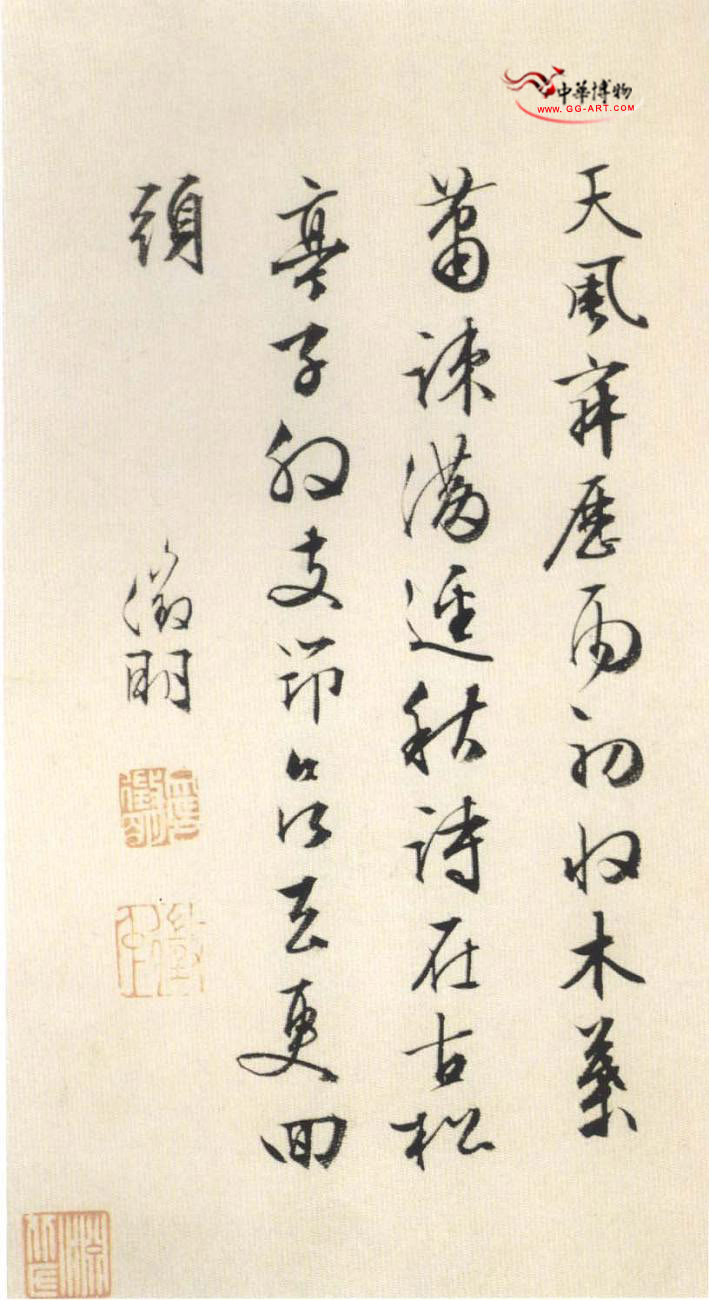 中華博物
www.GG-ART.COM
天風寂歷雨初收木葉
蕭疎滿逕秋詩在古松
亭子支筇欲去更回
頭
徵明